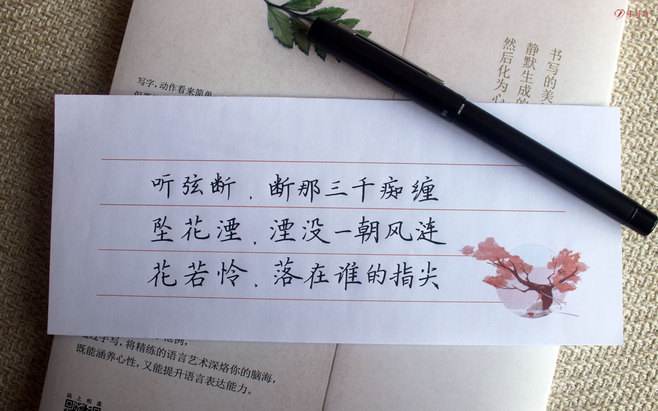 书写的美
静默生成的
然后化为心
写字，动作看来简单
听弦断，断那三千痴缠
坠花湮，湮没一朝风涟
花若怜，落在谁的指尖
将精练的语言艺术深烙你的脑海，
既能涵养心性，又能提升语言表达能力。